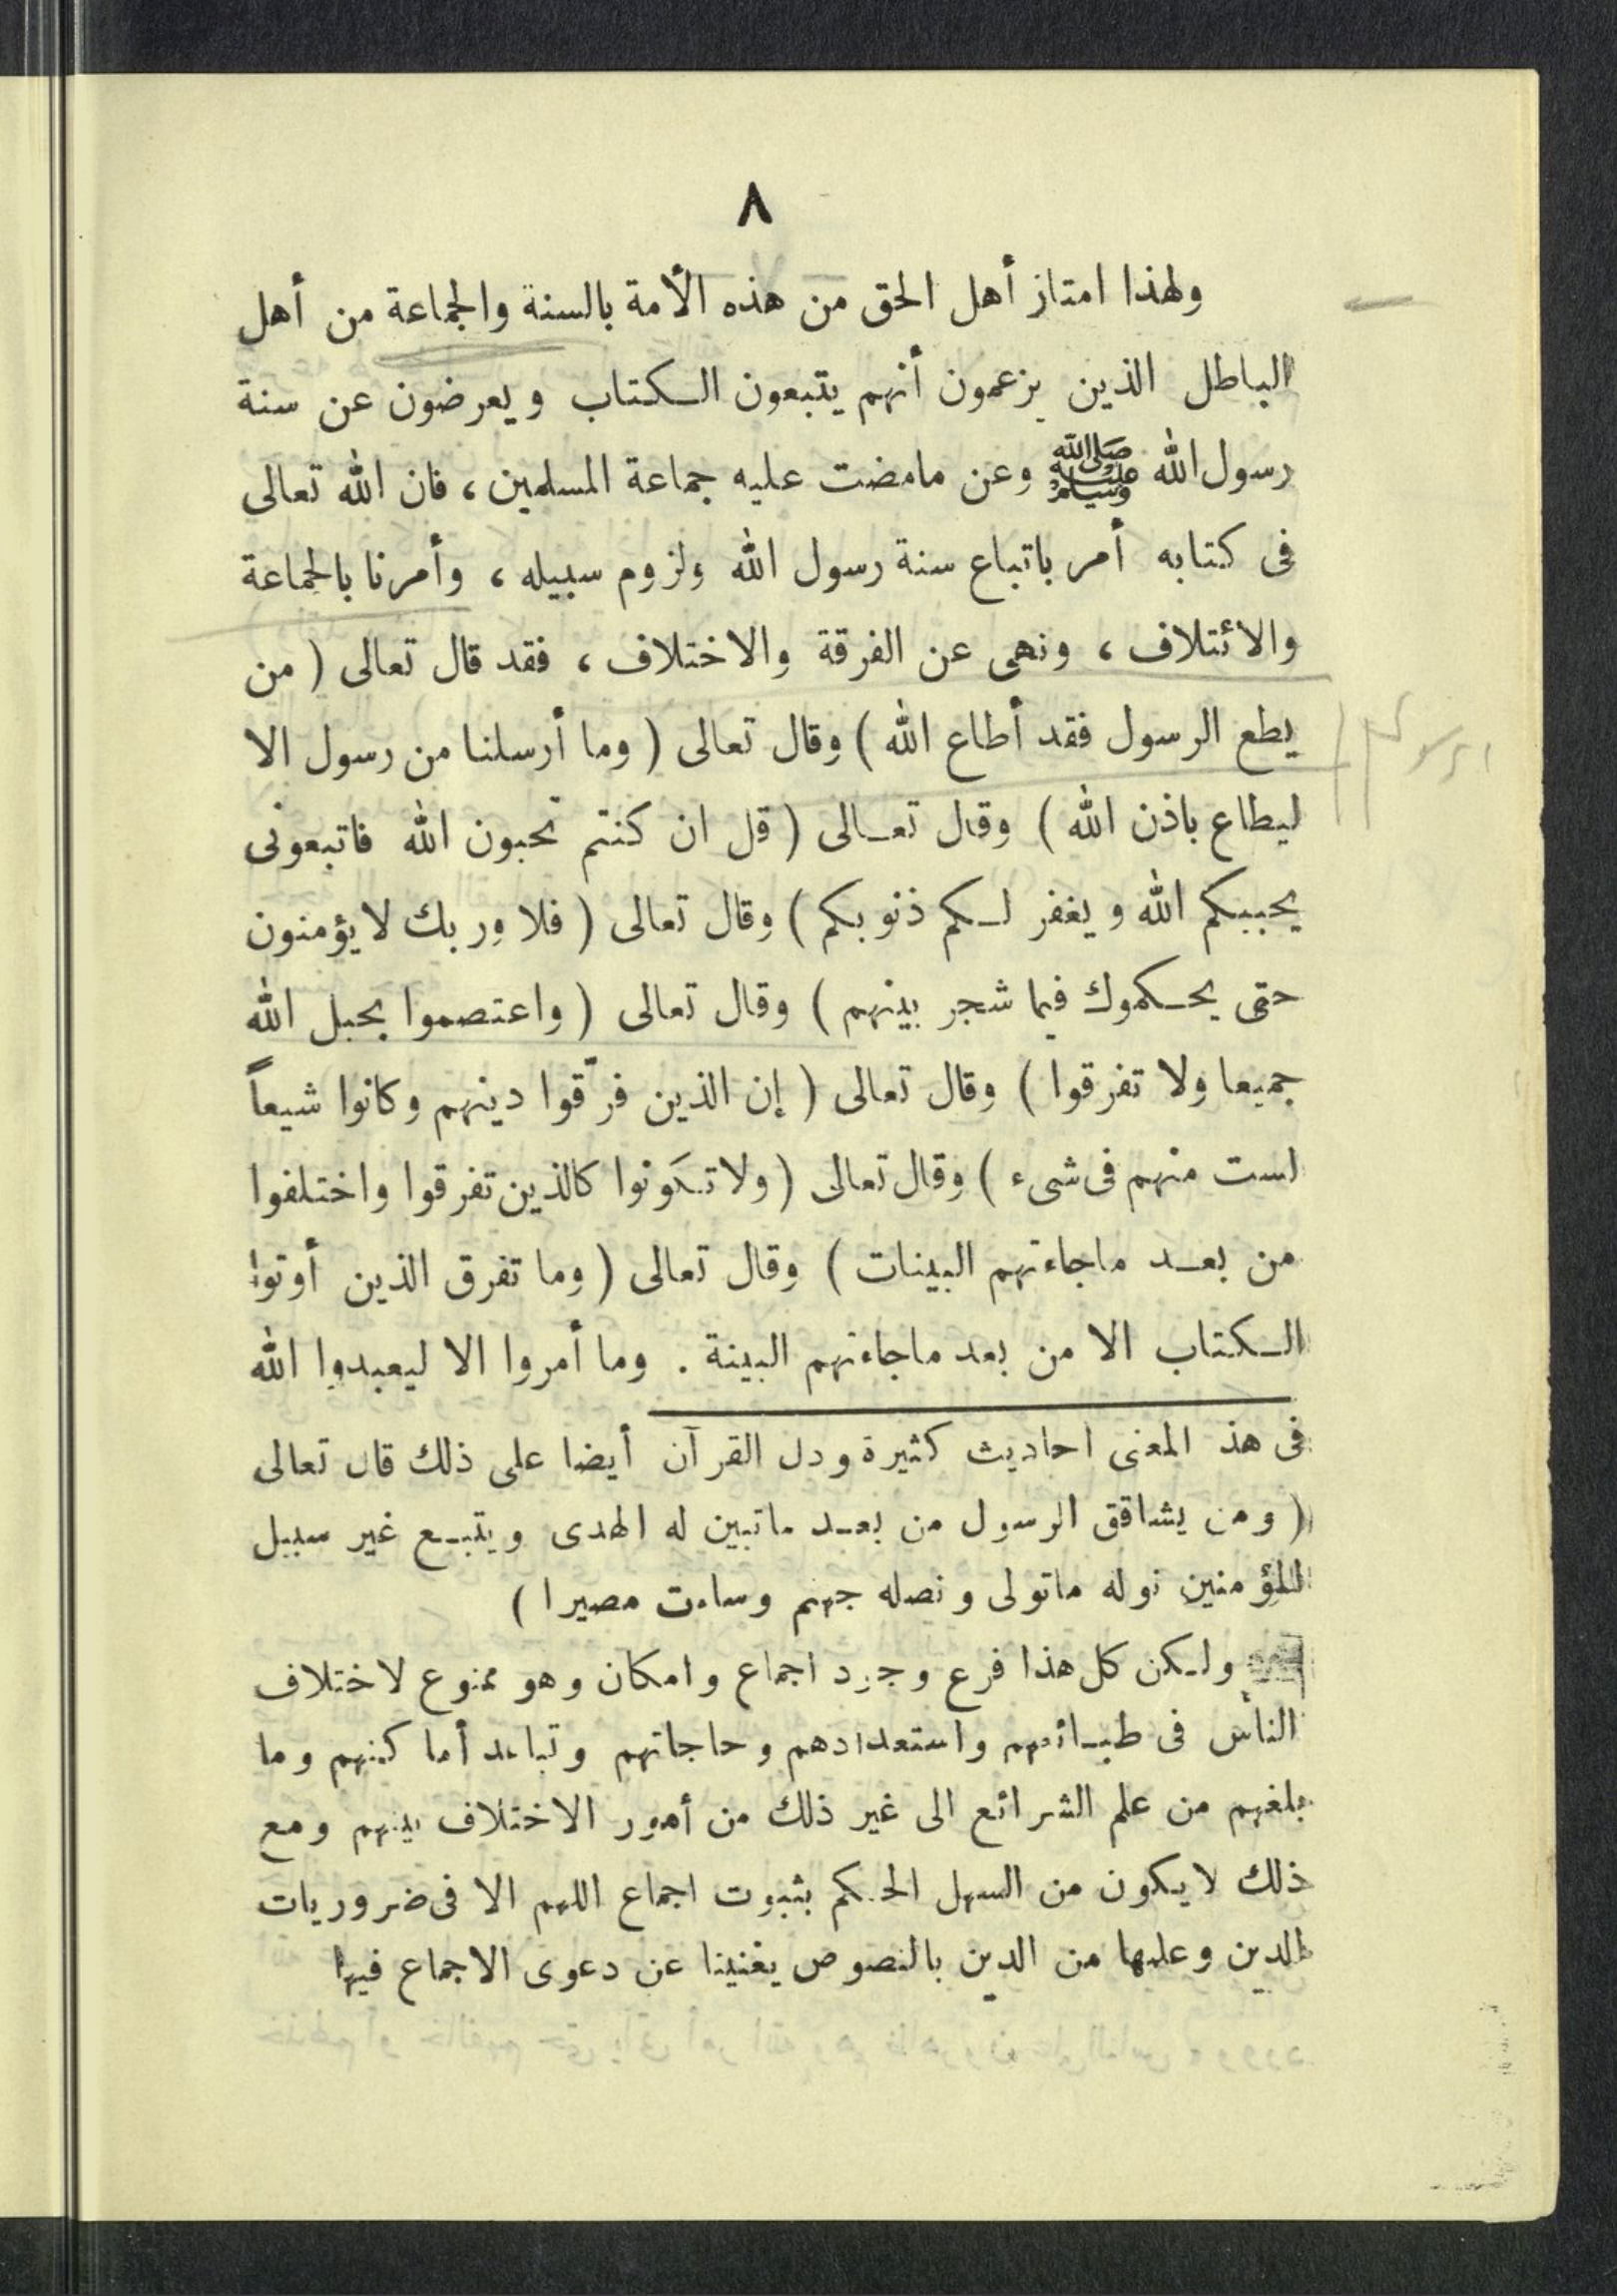 ٨
ولهذا امتاز أهل الحق من هذه الأمة بالسنة والجماعة من أهل
الباطل الذين يزعمون أنهم يتبعون الكتاب ويعرضون عن سنة
رسول الله ﷺ وعن مامضت عليه جماعة المسلمين، فان الله تعالى
فى كتابه أمر باتباع سنة رسول الله ولزوم سبيله، وأمرنا بالجماعة
والائتلاف، ونهى عن الفرقة والاختلاف، فقد قال تعالى ( من
يطع الرسول فقد أطاع الله ) وقال تعالى ( وما أرسلنا من رسول الا
ليطاع باذن الله ) وقال تعالى ( قل ان كنتم تحبون الله فاتبعونى
يحببكم الله ويغفر لكم ذنوبكم ) وقال تعالى ( فلا وربك لا يؤمنون
حتى يحكموك فيما شجر بينهم ) وقال تعالى ( واعتصموا بحبل الله
جميعا ولا تفرقوا ) وقال تعالى ( إن الذين فرّقوا دينهم وكانوا شيعاً
لست منهم فى شىء ) وقال تعالى ( ولا تكَونوا كالذين تفرقوا واختلفوا
من بعد ماجاءتهم البينات ) وقال تعالى ( وما تفرق الذين أوتوا
الكتاب الا من بعد ماجاءتهم البينة . وما أمروا الا ليعبدوا الله
فى هذ المعنى احاديث كثيرة ودل القرآن أيضا على ذلك قال تعالى
( ومن يشاقق الرسول من بعد ماتبين له الهدى ويتبع غير سبيل
المؤمنين نوله ماتولى ونصله جهنم وساءت مصيرا )
ولكن كل هذا فرع وجود اجماع وامكان وهو ممنوع لاختلاف
الناس فى طبائعهم واستعدادهم وحاجاتهم وتباعد أماكنهم وما
بلغهم من علم الشرائع الى غير ذلك من أمور الاختلاف بينهم ومع
ذلك لا يكون من السهل الحكم بثبوت اجماع اللهم الا فى ضروريات
الدين وعلمها من الدين بالنصوص يغنينا عن دعوى الاجماع فيها